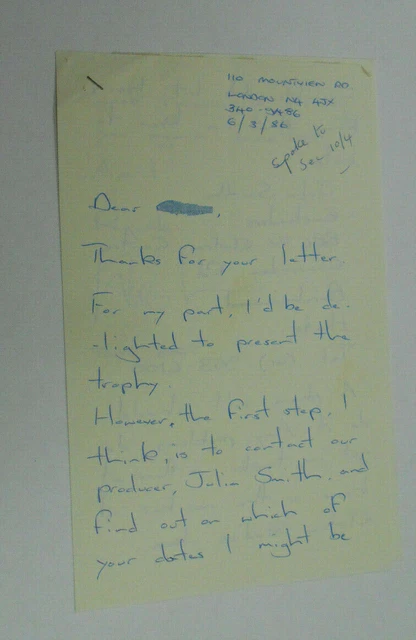 110 MOUNTVIEW RD
LONDON N4 4JX
340-9486
6/3/86
Spoke to
Sec 10/4
Dear
Thanks for your letter.
For my part, I'd be de-
-lighted to present the
trophy.
However, the first step, I
think, is to contact our
producer, Julia Smith, and
find out on which of
your dates I might be